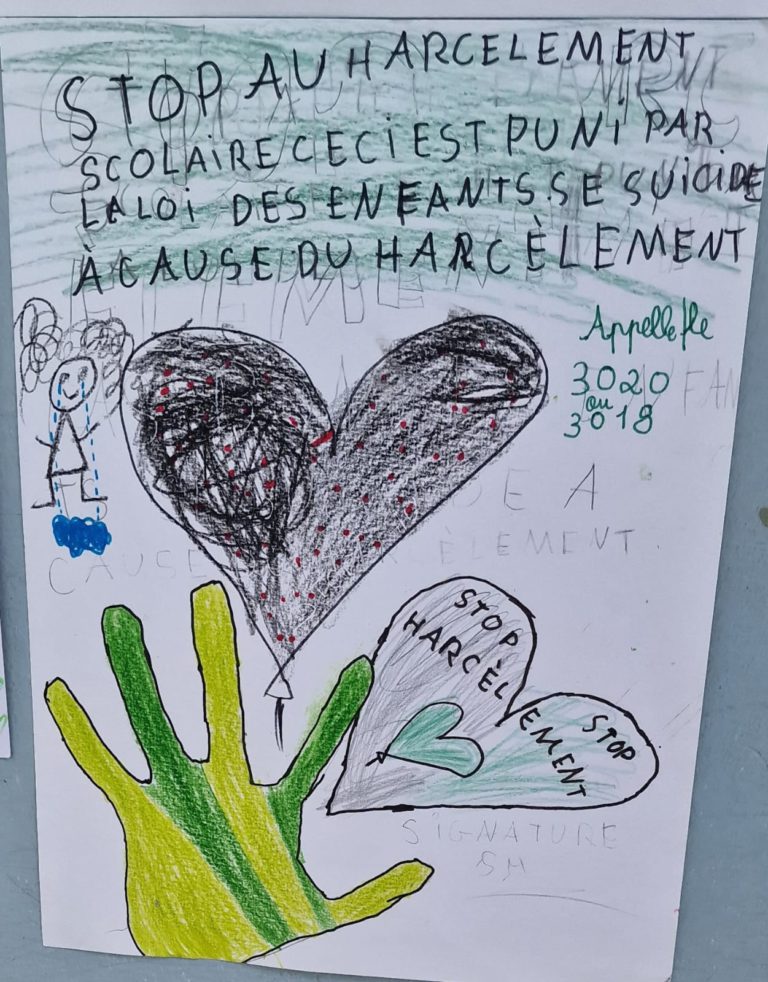 STOP AU HARCELEMENT
SCOLAIRE CECI EST PUNI PAR
LA LOI DES ENFANTS SE SUICIDE
À CAUSE DU HARCÈLEMENT
Appelle le
3020
ou
3018
DE A
CAUSE HARCÈLEMENT
STOP
HARCÈLEMENT
STOP
SIGNATURE
SH